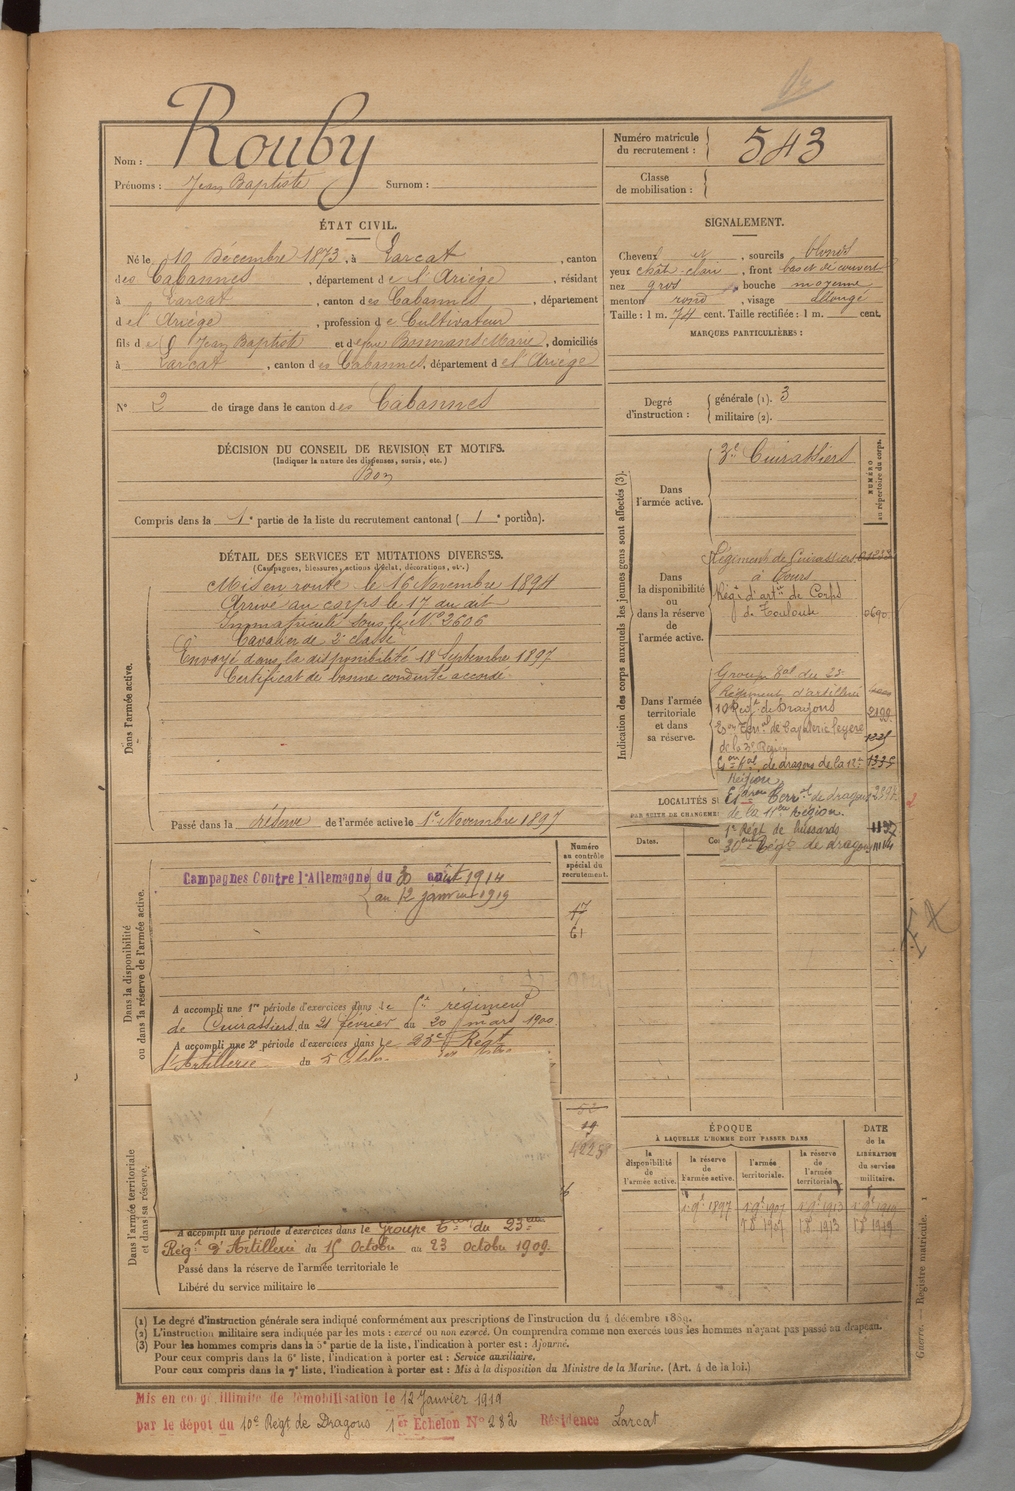 Nom : Rouby
Prénoms : Jean Baptiste Surnom :
Numéro matricule du recrutement : 543
Classe de mobilisation :
ÉTAT CIVIL.
Né le 19 décembre 1873, à Larcat, canton
des Cabannes, département de l'Ariège, résidant
à Larcat, canton des Cabannes, département
de l'Ariège, profession de Cultivateur
fils de f Jean Baptiste et de feue Bonnans Marie, domiciliés
à Larcat, canton des Cabannes, département de l'Ariège
N° 2 de tirage dans le canton des Cabannes
SIGNALEMENT.
Cheveux et, sourcils blonds
yeux chât-clair, front bas et découvert
nez gros, bouche moyenne
menton rond, visage allongé
Taille : 1 m. 74 cent. Taille rectifiée : 1 m. cent.
MARQUES PARTICULIÈRES :
Degré d'instruction : générale (1). 3
militaire (2).
DÉCISION DU CONSEIL DE REVISION ET MOTIFS.
(Indiquer la nature des dispenses, sursis, etc.)
Bon
Compris dans la 1e partie de la liste du recrutement cantonal (1e portion).
DÉTAIL DES SERVICES ET MUTATIONS DIVERSES.
(Campagnes, blessures, actions d'éclat, décorations, etc.)
Dans l'armée active.
Mis en route le 16 Novembre 1894
Arrivé au corps le 17 du dit
Immatriculé sous le N° 2606
Cavalier de 2e classe
Envoyé dans la disponibilité 18 Septembre 1897
Certificat de bonne conduite accordé.
Passé dans la réserve de l'armée active le 1er Novembre 1897
Indication des corps auxquels les jeunes gens sont affectés (3).
NUMÉRO au répertoire du corps.
Dans l'armée active.
3e Cuirassiers
Dans la disponibilité ou dans la réserve de l'armée active.
Régiment de Cuirassiers
à Tours
Régt d'artie de Corps
de Toulouse 0690
Dans l'armée territoriale et dans sa réserve.
Groupe Bal du 23e
Régiment d'artillerie
10e Régt de Dragons 2199
Eson Terral de Cavalerie légère
de la 3e Région
de dragons de la 12e 1335
Région
Terral de dragons
de la 11eme Région.
1er Régt de hussards 1137
30eme Régt de dragons
LOCALITÉS
PAR SUITE DE CHANGEME
Dates.
Dans la disponibilité ou dans la réserve de l'armée active.
Numéro au contrôle spécial du recrutement.
Campagnes Contre l'Allemagne du 30 août 1914
au 12 janvier 1919
17
61
A accompli une 1re période d'exercices dans le régiment
de Cuirassiers du 21 février au 20 mars 1900.
A accompli une 2e période d'exercices dans le 23e Régt
d'Artillerie du
Dans l'armée territoriale et dans sa réserve.
52
19
4225
A accompli une période d'exercices dans le Groupe du 23eme
Régt d'Artillerie du 15 Octobre au 23 octobre 1909
Passé dans la réserve de l'armée territoriale le
Libéré du service militaire le
ÉPOQUE
À LAQUELLE L'HOMME DOIT PASSER DANS
DATE de la LIBÉRATION du service militaire.
la disponibilité de l'armée active.
la réserve de l'armée active.
l'armée territoriale.
la réserve de l'armée territoriale.
1 9e 1897 1 9e 1907 1 9e 1913 1 9e 1919
1907 1913 1919
(1) Le degré d'instruction générale sera indiqué conformément aux prescriptions de l'instruction du 4 décembre 1889.
(2) L'instruction militaire sera indiquée par les mots : exercé ou non exercé. On comprendra comme non exercés tous les hommes n'ayant pas passé au drapeau.
(3) Pour les hommes compris dans la 5e partie de la liste, l'indication à porter est : Ajourné.
Pour ceux compris dans la 6e liste, l'indication à porter est : Service auxiliaire.
Pour ceux compris dans la 7e liste, l'indication à porter est : Mis à la disposition du Ministre de la Marine. (Art. 4 de la loi.)
Guerre. — Registre matricule. 1
Mis en congé illimité de démobilisation le 12 Janvier 1919
par le dépôt du 10e Régt de Dragons 1er Echelon N° 282 Résidence Larcat